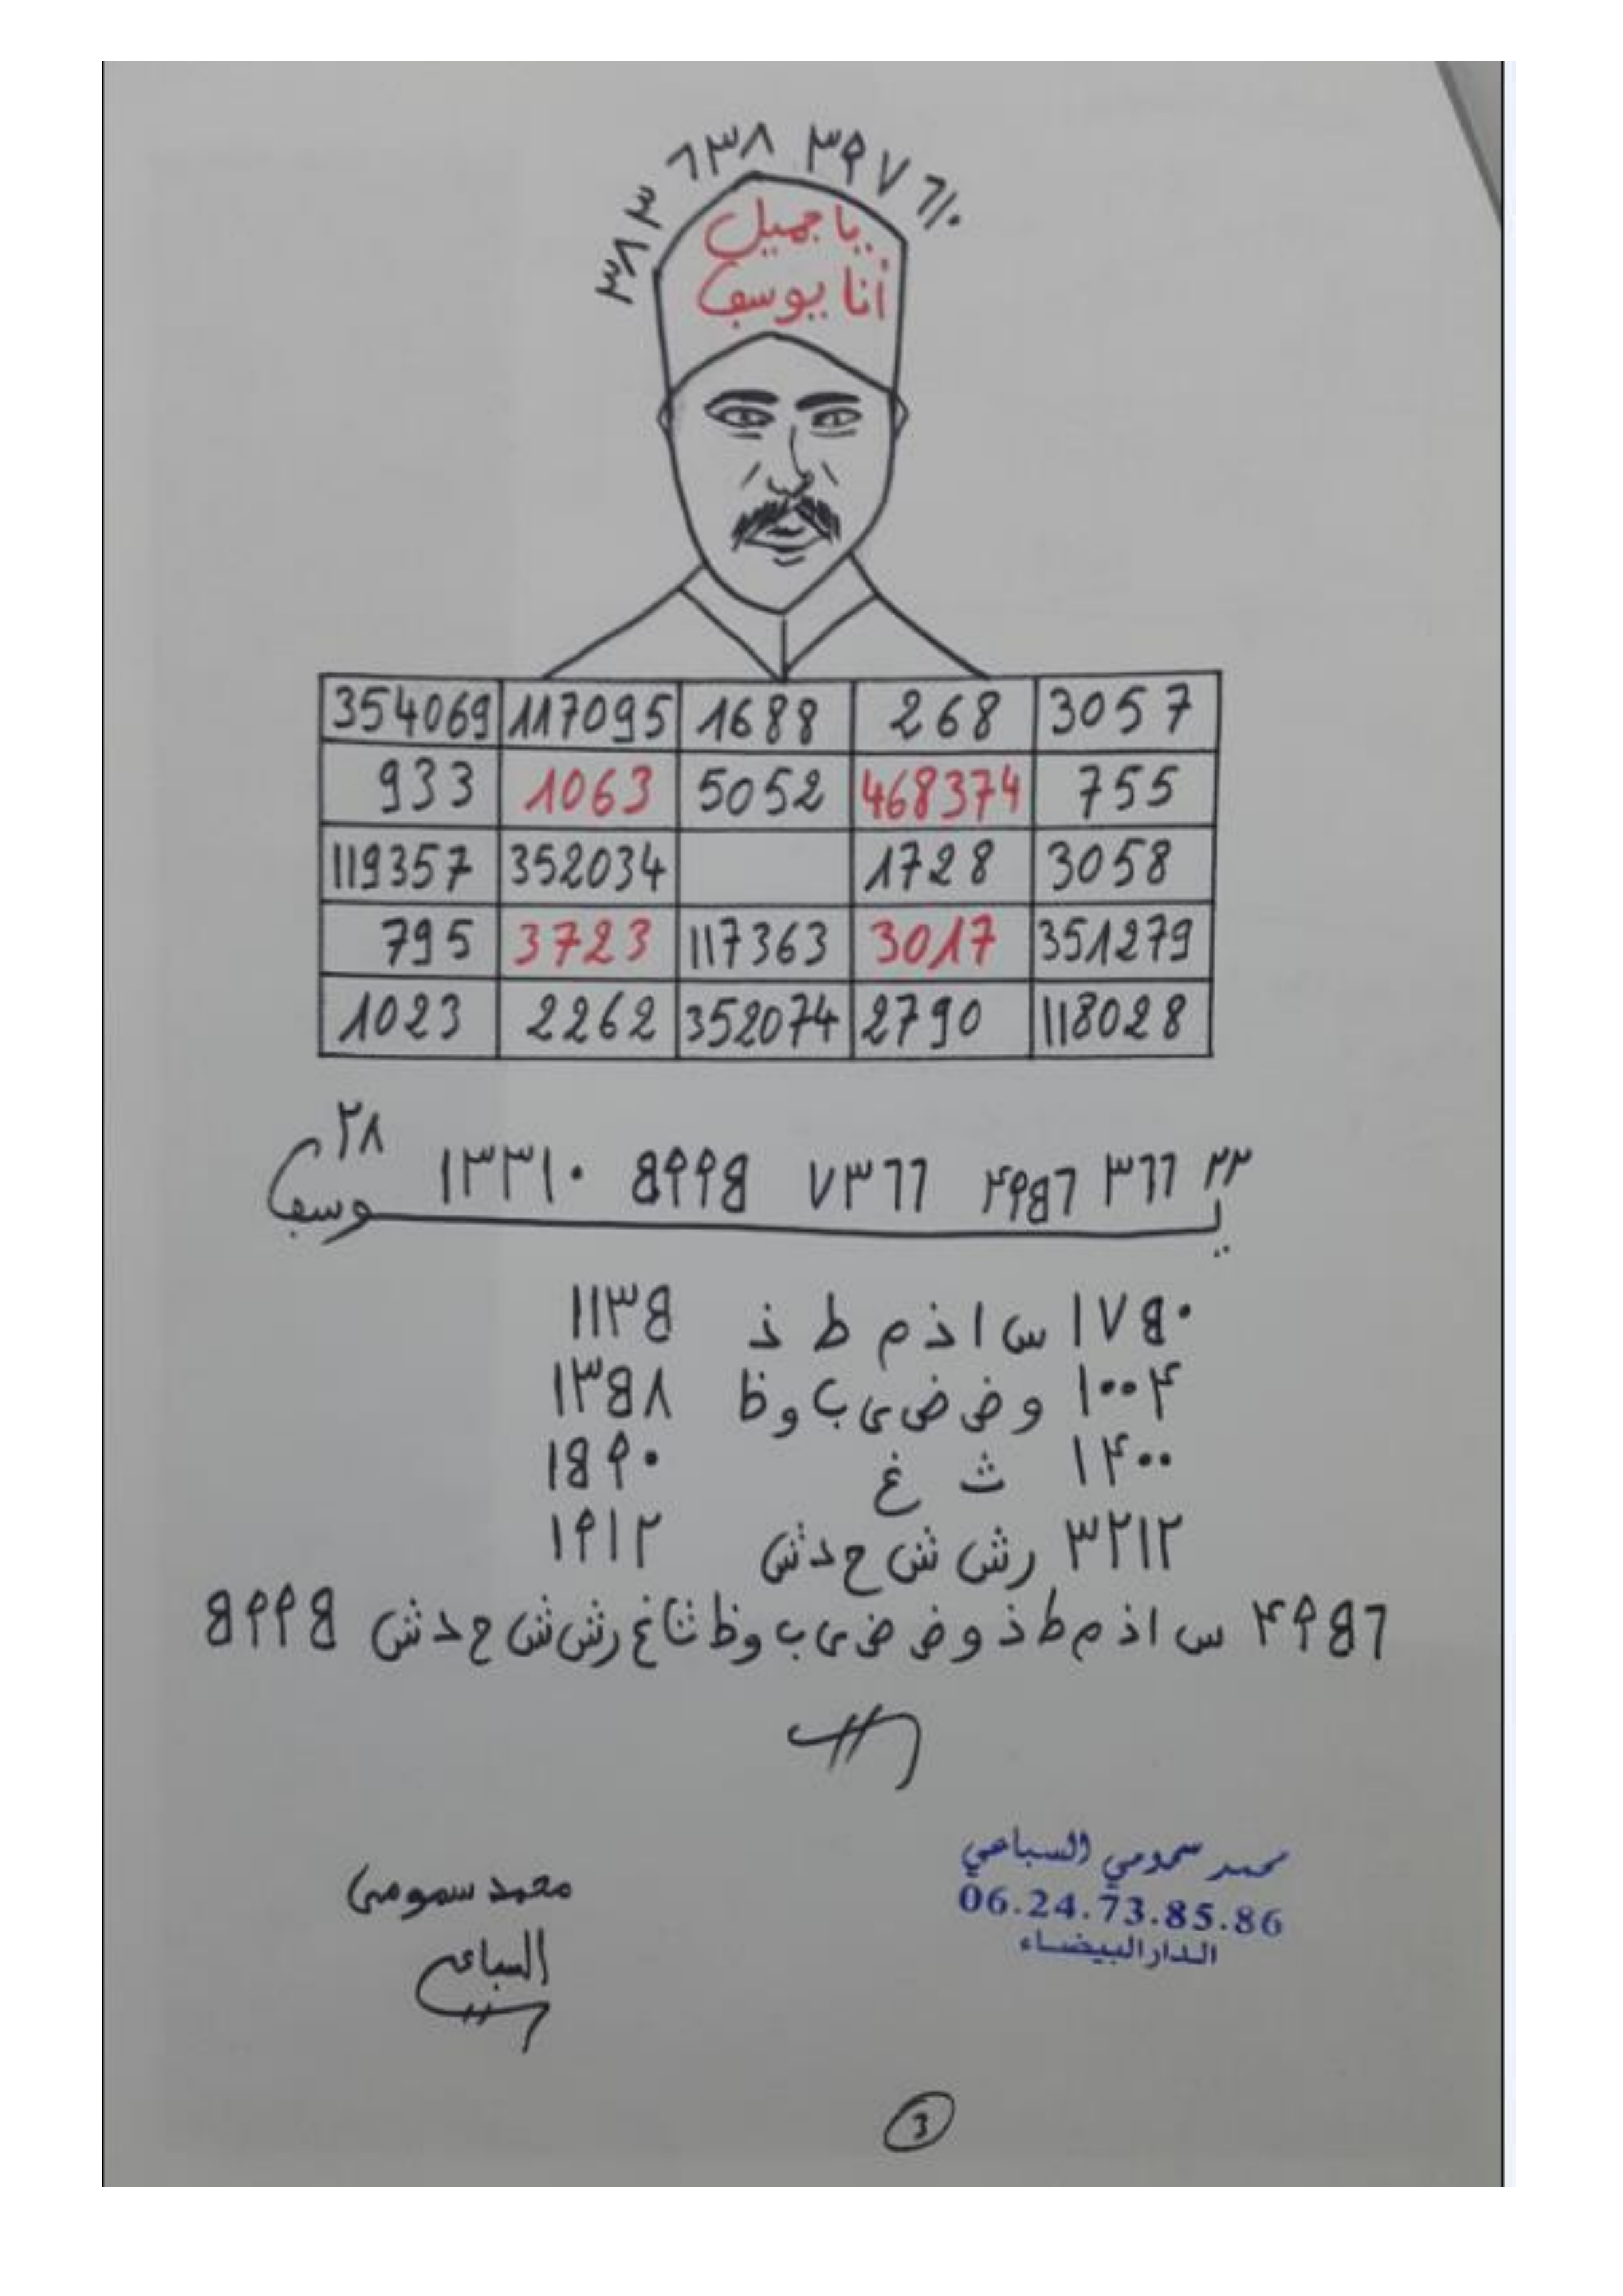 ٣٨٣ ٦٣٨ ٣٩٧ ٦١٠
يا جميل
أنا يوسف
354069 117095 1688 268 3057
933 1063 5052 468374 755
119357 352034 1728 3058
795 3723 117363 3017 351279
1023 2262 352074 2790 118028
٢٣ ٣٦٦ ٤٩٥٦ ٧٣٦٦ ٥٩٩٥ ١٣٣١٠ ٢٨
يوسف
١٧٥٠ س ا ذ م ط ذ ١١٣٥
١٠٠٤ و ض ض ى ب و ظ ١٣٥٨
١٤٠٠ ث غ ١٥٩٠
٣٢١٢ ر ش ش ح د ش ١٩١٢
٤٩٥٦ س ا ذ م ط ذ و ض ض ى ب و ظ ث ا غ ر ش ش ح د ش ٥٩٩٥
محمد سمومي السباعي
06.24.73.85.86
الدار البيضاء
محمد سمومي
السباعي
3